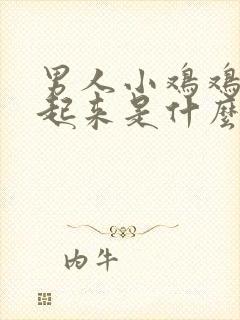 男人小鸡鸡
起来是什麼
内牛